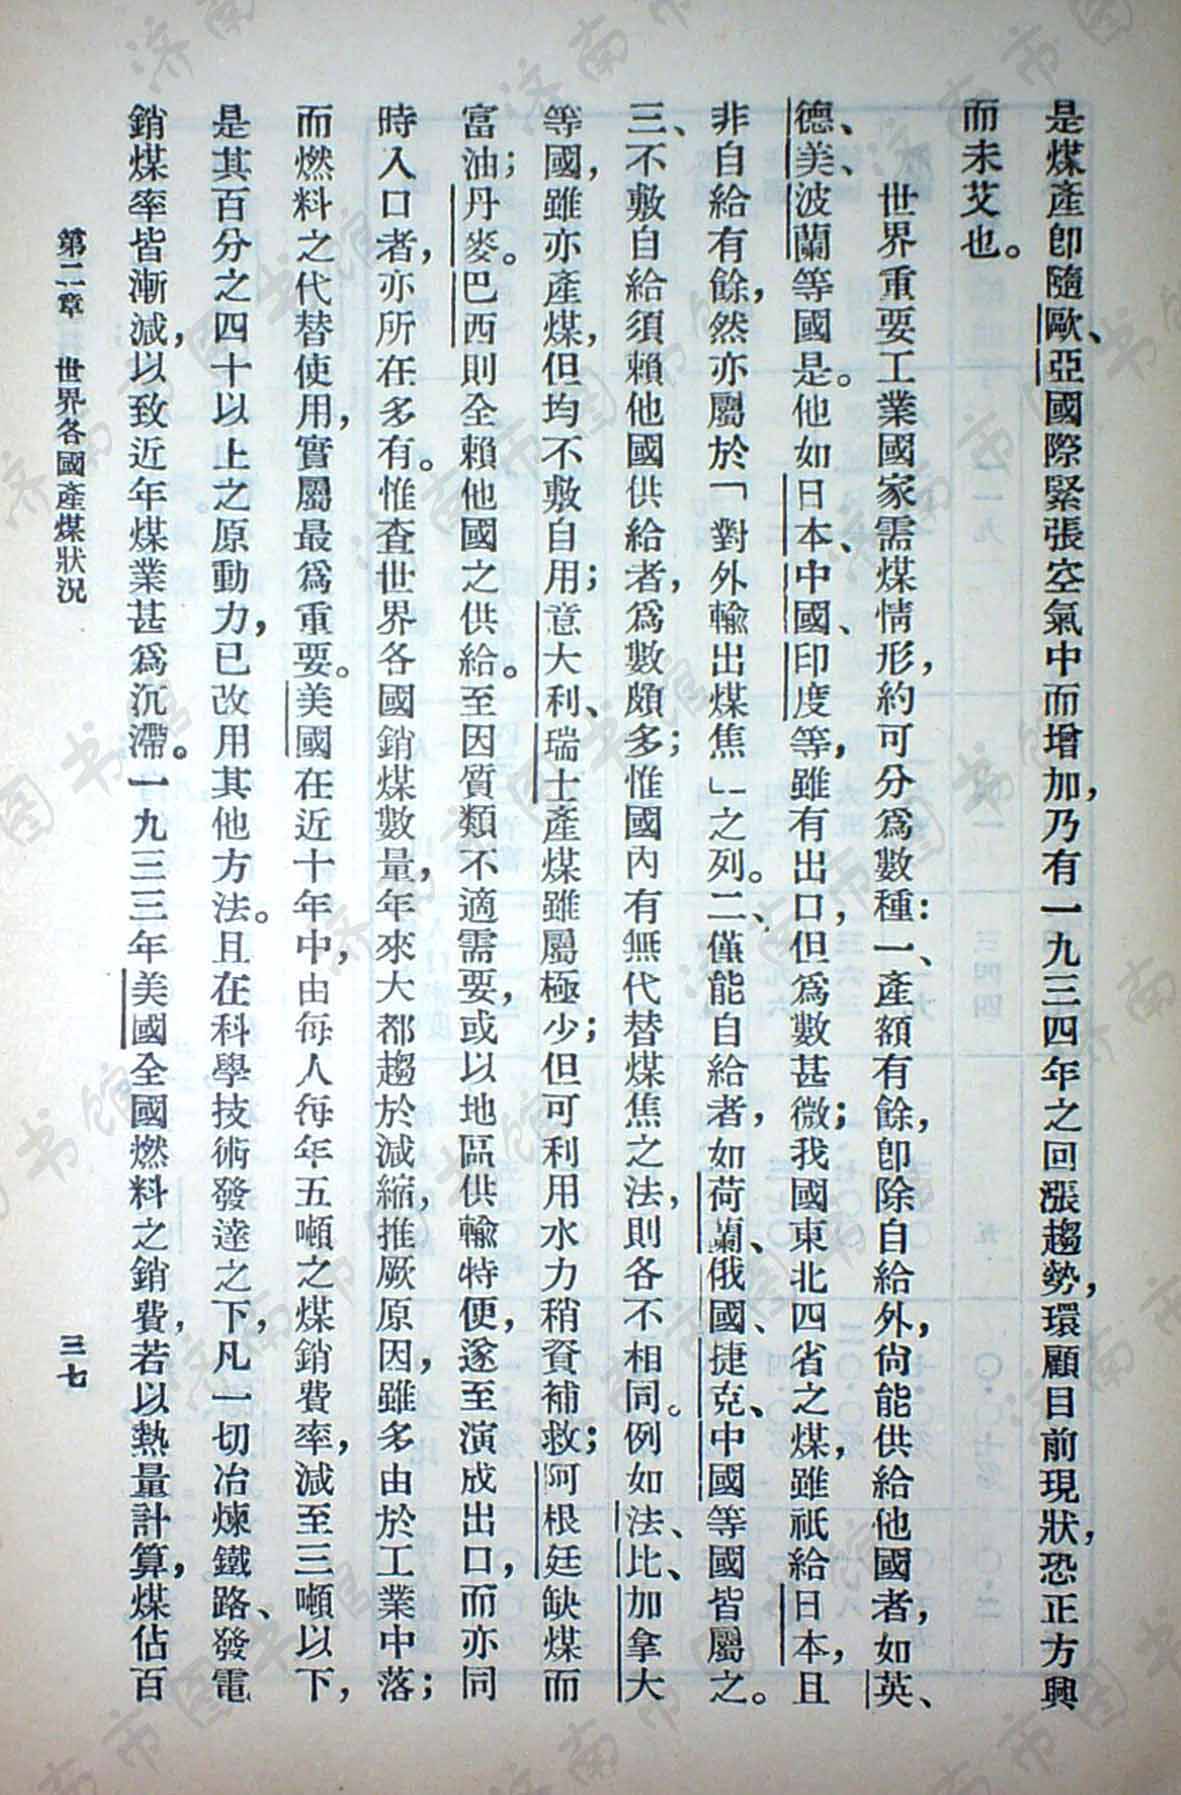 是煤產卽隨歐、亞國際緊張空氣中而增加，乃有一九三四年之回漲趨勢，環顧目前現狀，恐正方興
而未艾也。
世界重要工業國家需煤情形，約可分爲數種：一、產額有餘，卽除自給外，尙能供給他國者，如英、
德、美、波蘭等國是。他如日本、中國、印度等，雖有出口，但爲數甚微；我國東北四省之煤，雖祇給日本，且
非自給有餘，然亦屬於「對外輸出煤焦」之列。二、僅能自給者，如荷蘭、俄國、捷克、中國等國皆屬之。
三、不敷自給須賴他國供給者，爲數頗多；惟國內有無代替煤焦之法，則各不相同。例如法、比、加拿大
等國，雖亦產煤，但均不敷自用；意大利、瑞士產煤雖屬極少；但可利用水力稍資補救；阿根廷缺煤而
富油；丹麥。巴西則全賴他國之供給。至因質類不適需要，或以地區供輸特便，遂至演成出口，而亦同
時入口者，亦所在多有。惟查世界各國銷煤數量，年來大都趨於減縮，推厥原因，雖多由於工業中落；
而燃料之代替使用，實屬最爲重要。美國在近十年中，由每人每年五噸之煤銷費率，減至三噸以下，
是其百分之四十以上之原動力，已改用其他方法。且在科學技術發達之下，凡一切冶煉鐵路、發電
銷煤率皆漸減，以致近年煤業甚爲沉滯。一九三三年美國全國燃料之銷費，若以熱量計算，煤佔百
第二章　世界各國產煤狀況
三七